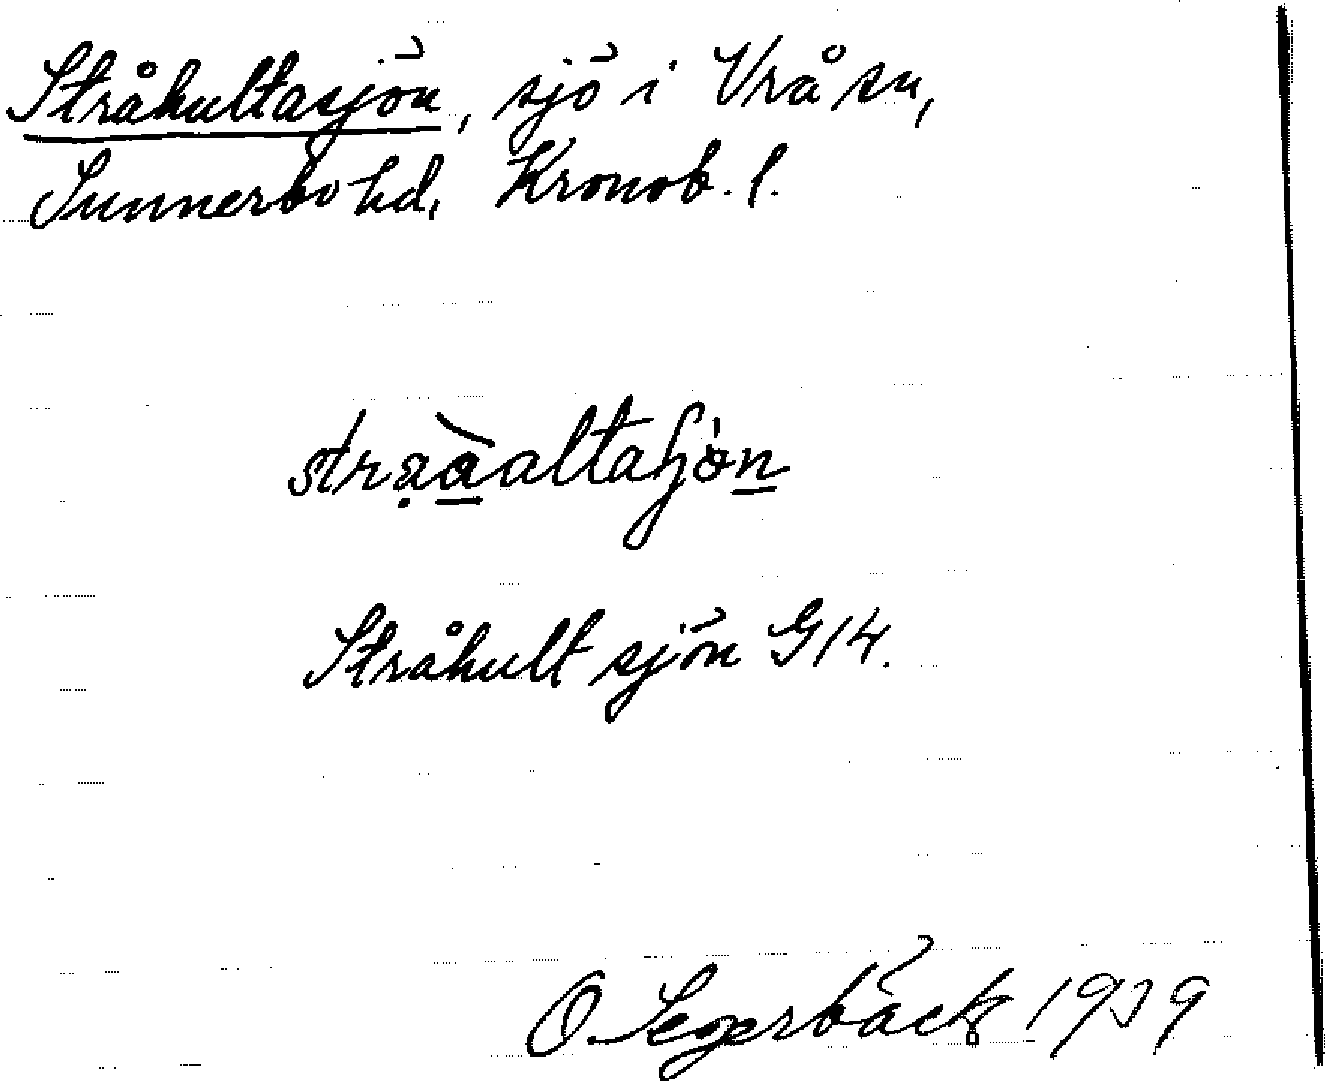 Stråhultasjön, sjö i Vrå sn,
Sunnerbo hd, Kronob. l.
Stråhult sjön G14.
O. Segerbäck 1939